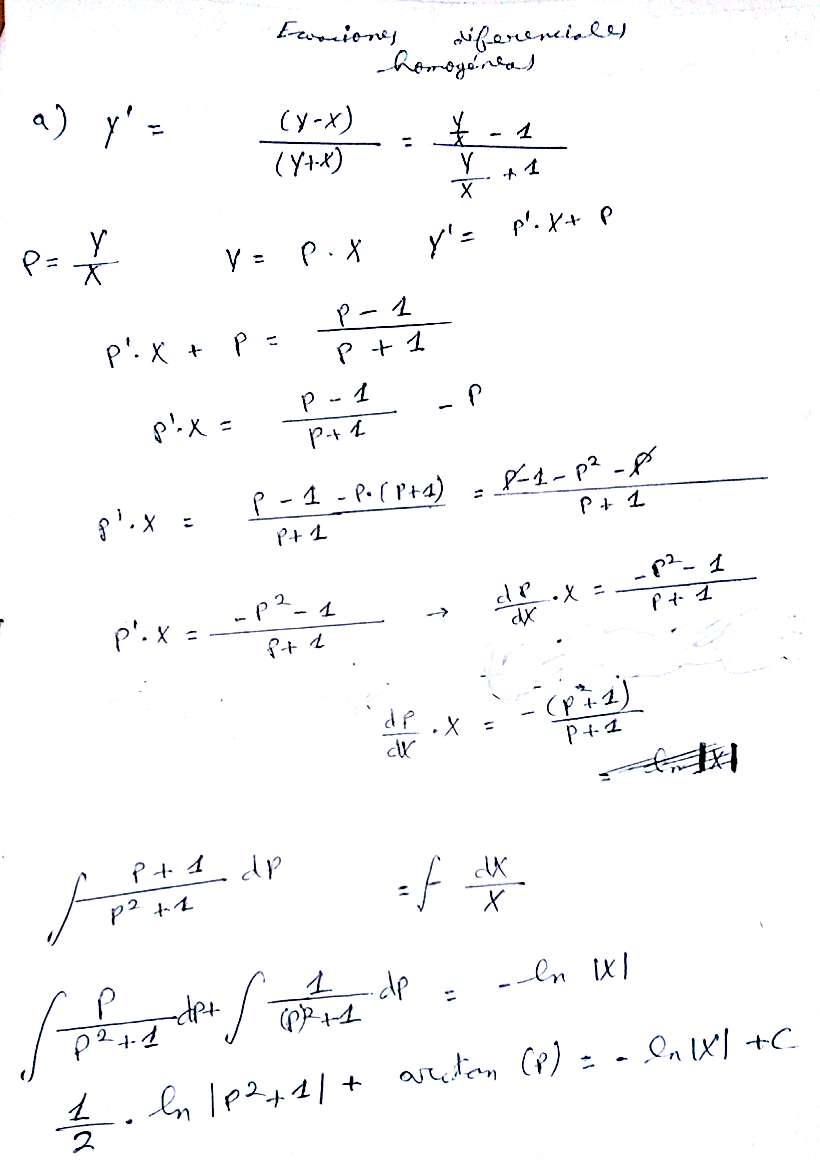 Ecuaciones diferenciales
homogéneas
a) y' = (y-x)/(y+x) = (y/x - 1)/(y/x + 1)
P = y/x y = P · x y' = P' · x + P
P' · x + P = (P - 1)/(P + 1)
P' · x = (P - 1)/(P + 1) - P
P' · x = (P - 1 - P · (P+1))/(P + 1) = (P - 1 - P² - P)/(P + 1)
P' · x = (-P² - 1)/(P + 1) → dP/dx · x = (-P² - 1)/(P + 1)
dP/dx · x = -(P² + 1)/(P + 1)
= ln|x|
∫ (P + 1)/(P² + 1) dP = ∫ dx/x
∫ P/(P² + 1) dP + ∫ 1/((P)² + 1) dP = - ln |x|
1/2 · ln |P² + 1| + arctan (P) = - ln |x| + C